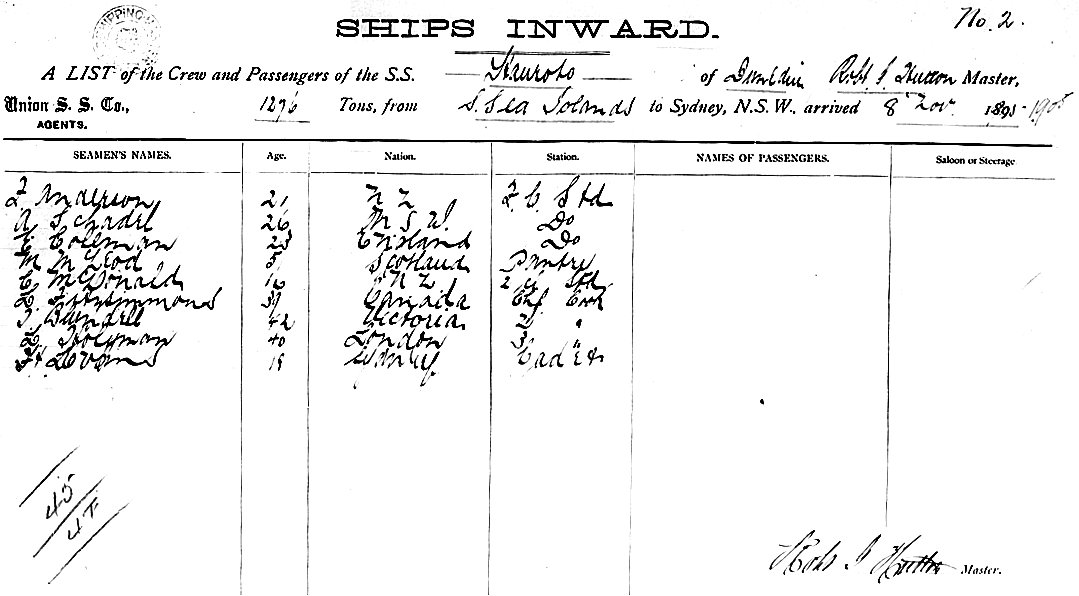 No. 2.
SHIPS INWARD.
A LIST of the Crew and Passengers of the S.S. Hauroto of Dunedin Robt J. Hutton Master,
Union S. S. Co., 1276 Tons, from S. Sea Islands to Sydney, N.S.W., arrived 8 Nov. 1895 1905
AGENTS.
SEAMEN'S NAMES. Age. Nation. Station. NAMES OF PASSENGERS. Saloon or Steerage
Anderson 21 N Z F. C. Std
A Schadel 26 N S W. Do
Coleman 23 England Do
M McLeod Scotland Pantry
McDonald 16 N Z 2 Std
Fitzsimmons 31 Canada Chf. Cook
J. Blundell 42 Victoria 2 "
Holyman 40 London 3 "
Evans 18 Sydney Cadet
45
47
Robt J Hutton Master.